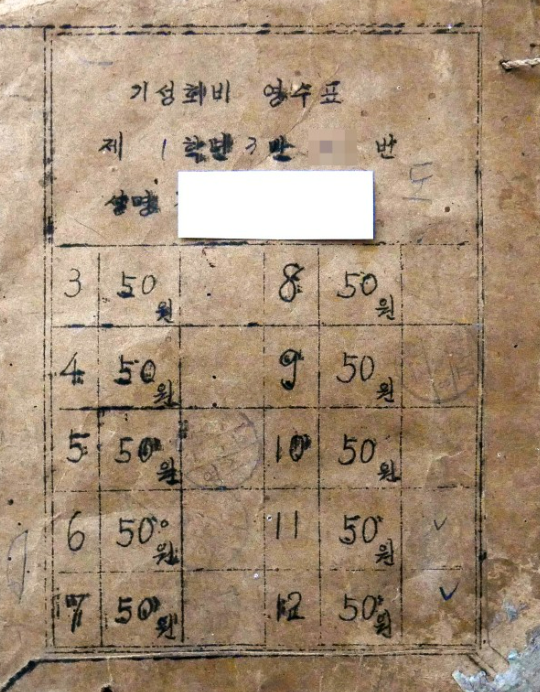 기성회비 영수표
제 1 학년 3 반 번
성명
도
3 50원 8 50원
4 50원 9 50원
5 50원 10 50원
6 50원 11 50원
7 50원 12 50원